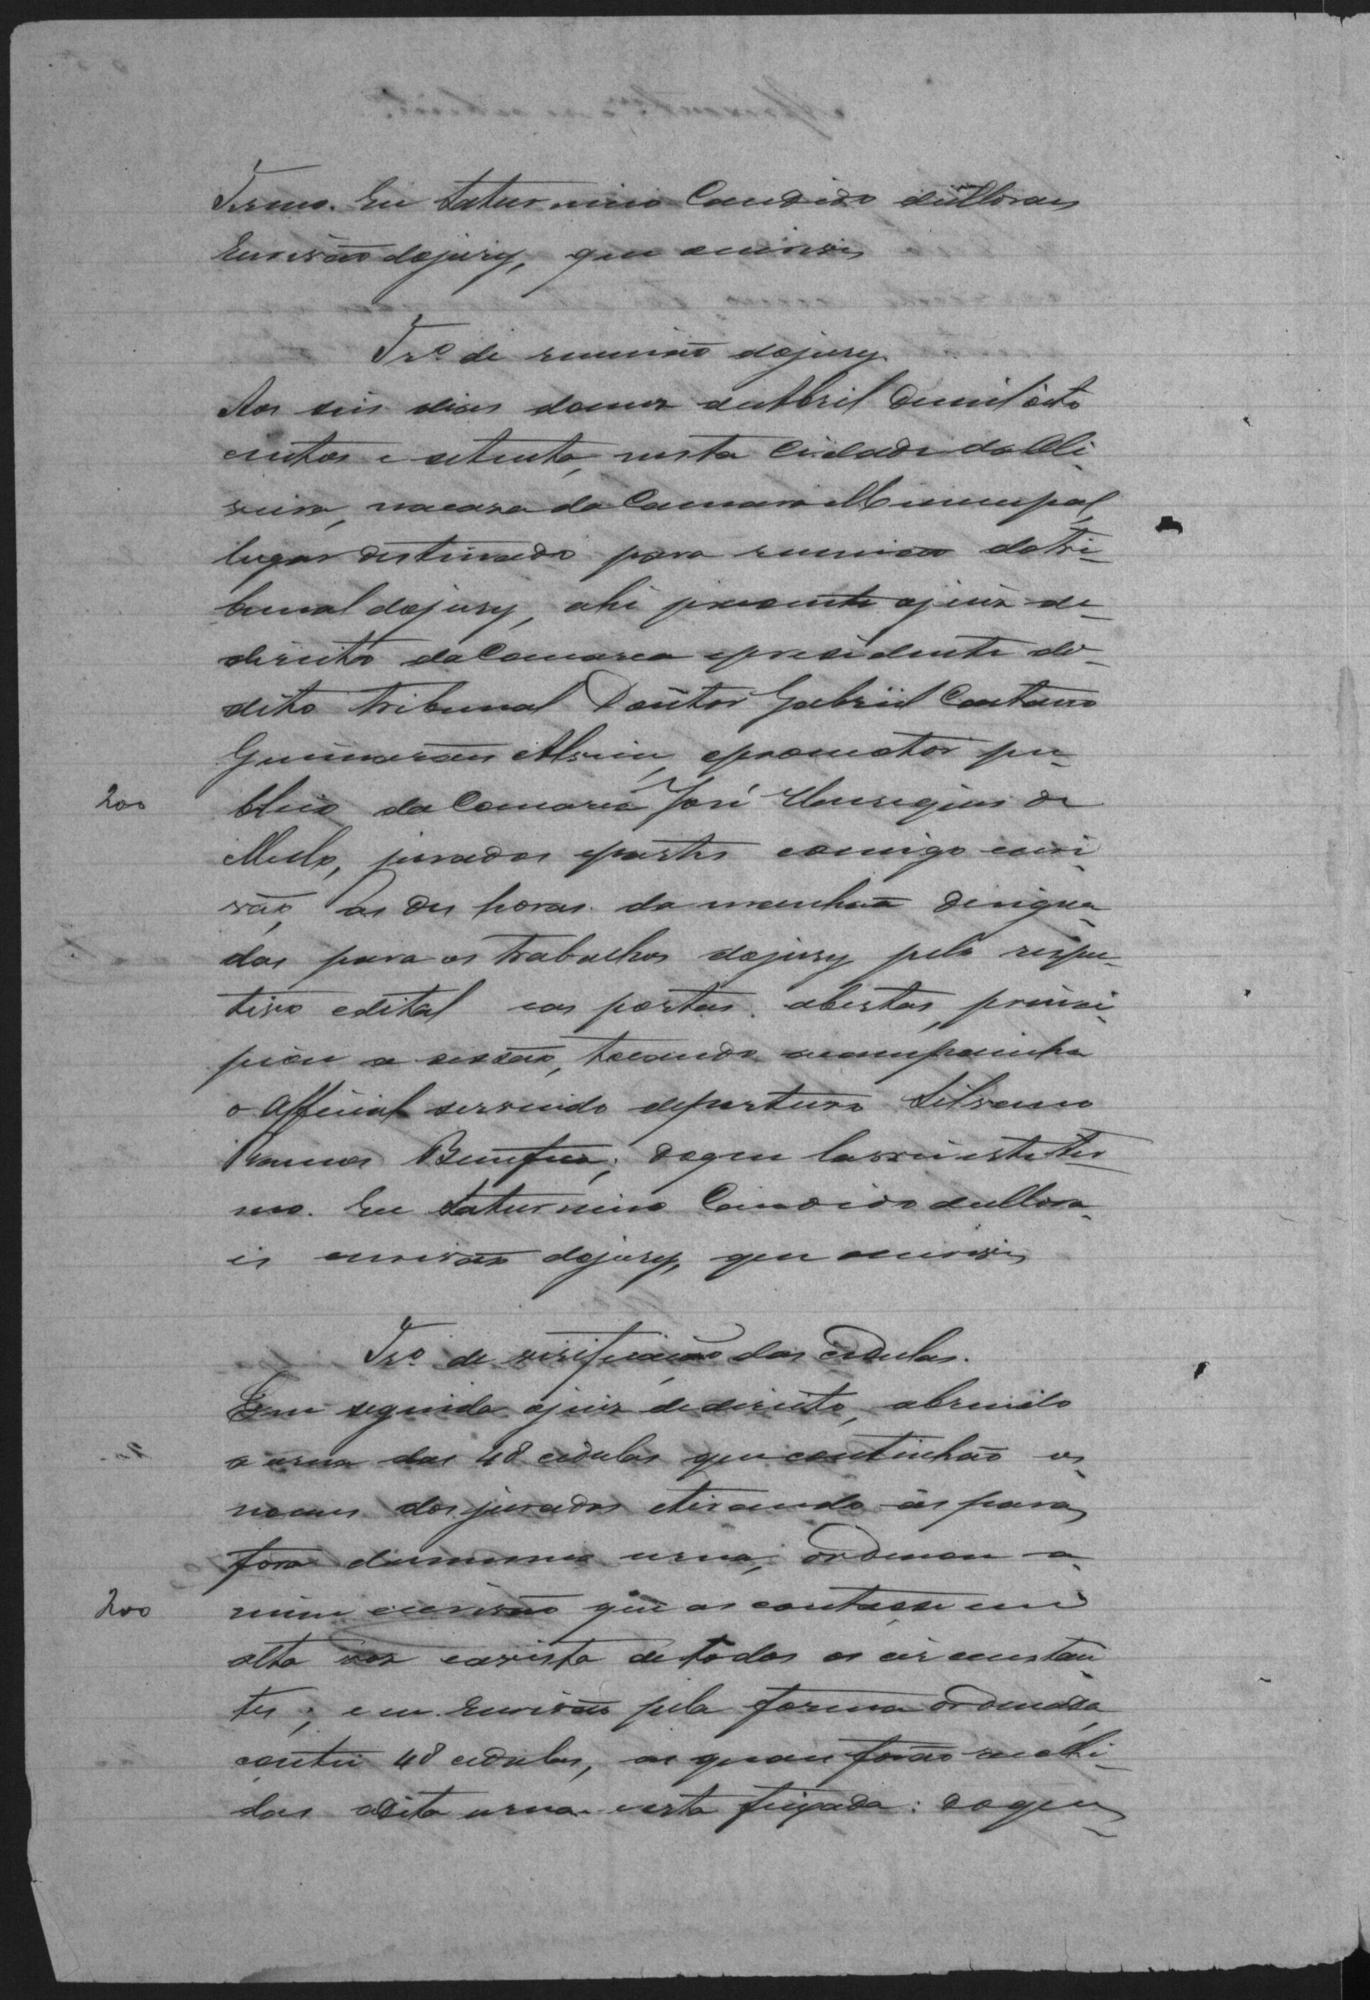 Termo. Eu Saturnino Candido de Moraes
Escrivão do jury, que escrevi
Tr.º de reunião do jury.
Aos seis dias do mez de Abril de mil oito
centos e setenta, nesta Cidade da Oli-
veira, na casa da Camara Municipal,
lugar destinado para reunião do tri-
bunal do jury, ahi presente o juiz de
direito da Comarca e presidente do
dito tribunal Doutor Gabriel Caetano
Guimarães Alvim, e promotor pu-
200
blico da Comarca José
de
Mello, jurados e partes comigo escri
vão, as dez horas da manhã designa
das para os trabalhos do jury pelo respec-
tivo edital e as portas abertas, princi-
piou a sessão, tocando a campainha
o Official servindo de porteiro Silverio
Ramos; do que lavrei este ter
mo. Eu Saturnino Candido de Mora-
is escrivão do jury, que escrevi
Tr.º de verificação das cedulas.
Em seguida o juiz de direito, abrindo
a urna das 48 cedulas que continhão os
nomes dos jurados e tirando-as para
fora da mesma urna, ordenou a
200
mim escrivão que as contasse em
alta voz e a vista de todos os circunstan
tes; e eu Escrivão pela forma ordenada,
contei 48 cedulas, as quaes forão recolhi-
das a dita urna e esta feixada: do que